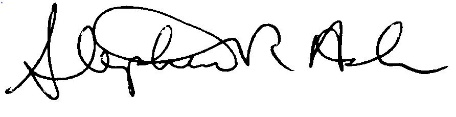 Stephen R Ash